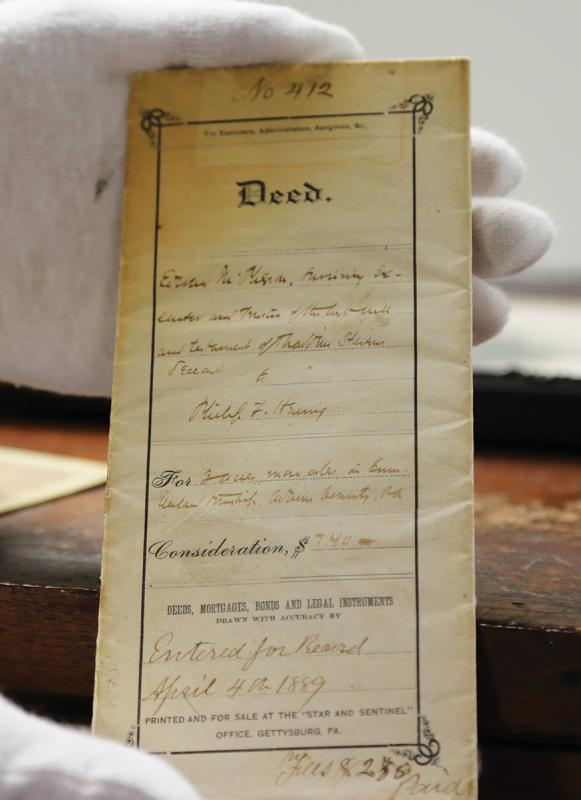 No 412
For Executors, Administrators, Assignees, &c.
Deed.
Edward McPherson, surviving Ex-
ecutor and Trustee of the last will
and testament of Thaddeus Stevens
Deceased
to
Philip F.
For 3 acres, more or less, in Cum-
berland township, Adams County, Pa
Consideration, $ 740 —
DEEDS, MORTGAGES, BONDS AND LEGAL INSTRUMENTS
DRAWN WITH ACCURACY BY
Entered for Record
April 4th 1889
PRINTED AND FOR SALE AT THE "STAR AND SENTINEL"
OFFICE, GETTYSBURG, PA.
Fees $
Paid